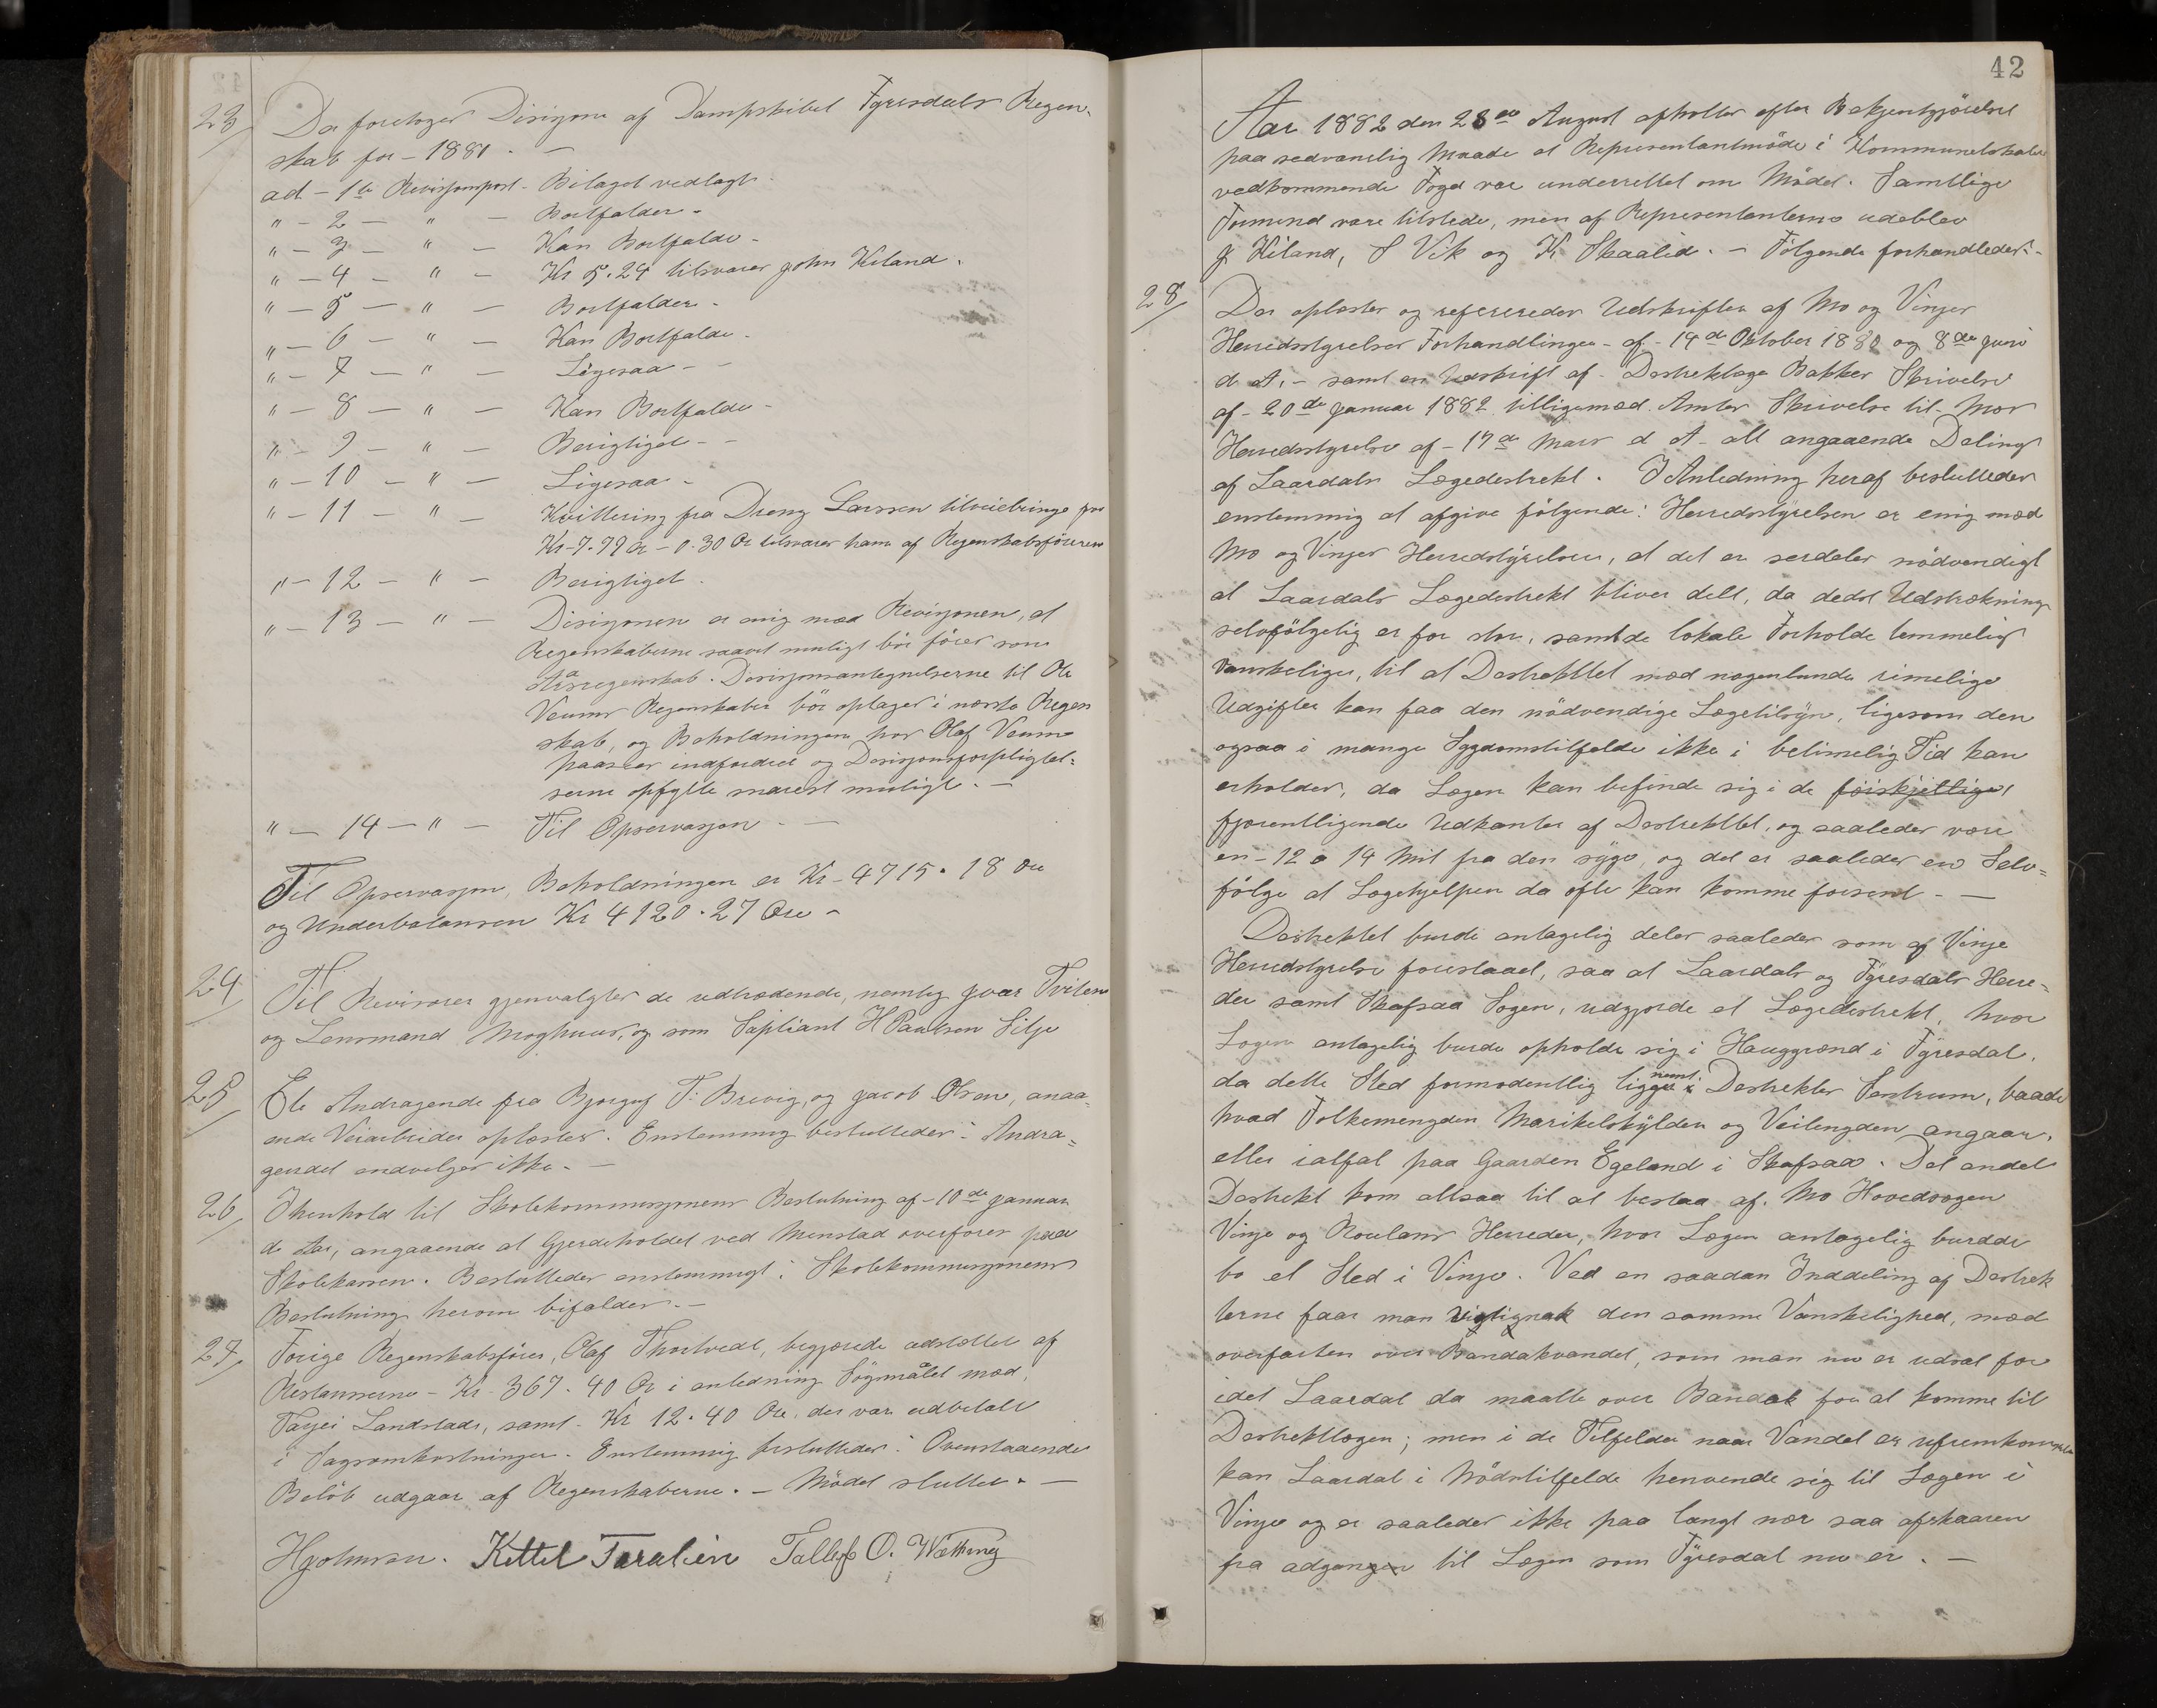 23/ Der foretoges Disisjon af Dampskibet Fyresdals Regen-
skab for - 1881. -
ad - 1ste Revisjonspost - Bilaget vedlagt.
" - 2 - " - Bortfalder -
" - 3 - " - Kan Bortfalde -
" - 4 - " - Kr 5.24 tilsvarer John Kiland.
" - 5 - " - Bortfalder -
" - 6 - " - Kan Bortfalde -
" - 7 - " - Ligesaa - -
" - 8 - " - Kan Bortfalde -
" - 9 - " - Berigtiget - -
" - 10 - " - Ligesaa -
" - 11 - " - Kvittering fra Dreng Larssen tilveiebringes for
Kr - 7.79 Ør - 0.30 Ør tilsvares ham af Regenskabsföreren
" - 12 - " - Berigtiget.
" - 13 - " - Disisjonen er enig mæd Revisjonen, at
Regenskaberne saavt muligt bör föres som
Årsregenskab. Disisjonsantegnelserne til Ole
Veums Regenskaber bör optages i næste Regen
skab, og Beholdningen hos Olaf Veum
paases indfordret og Desisjonsforpligtel-
serne opfylte snarest muligt. -
" - 14 - " - Til Opservasjon - -
Til Opservasjon, Beholdningen er Kr - 4715. 18 Øre
og Underbalansen Kr 4120.27 Øre -
24/ Til Revisorer gjenvalgtes de udtrædende, nemlig Ivar Tviten
og Lensmand Moghuus, og som Supliant H Paulsen Silje
25/ Ete Andragende fra Bjorguf T. Brevig, og Jacob Olsen, anaa-
ende Veiarbeider oplæstes. Enstemmig besluttedes: Andra-
gendet endvelges ikke. -
26/ I henhold til Skolekommisjonens Beslutning af - 10de Januar
ds Aar, angaaende at Gjerdeholdet ved Menstad overföres paa
Skolekassen. Besluttedes enstemmigt: Skolekommisjonens
Beslutning herom bifaldes. -
27/ Forige Regenskabsförer, Olaf Thortvedt, begjærede udslættet af
Restanserne - Kr - 367.40 Ør i anledning Sögsmålet mæd
Tarjei Landstads, samt. Kr 12.40 Øre. der var udbetalt
i Sagsomkostninger. Enstemmig besluttedes: Ovenstaaende
Belöb udgaar af Regenskaberne. - Mödet sluttet. -
Hjolmsen. Kettil Taralien Tallef O. Wætting
42
Aar 1882 den 28de August afholtes efter Bekjentgjörelse
paa sedvanelig Maade et Representantmöde i Kommunelokalet
vedkommende Foged var underrettet om Mödet. Samtlige
Formend vare tilstede, men af Representanterne udeblev
J. Kiland, S Vik og K. Skaalid. - Fölgende forhandledes: -
28/ Der oplæstes og refereredes Udskrifter af Mo og Vinjes
Herredsstyrelses Forhandlinger - af - 14de Oktober 1880 og 8de Juni
d. A. - samt en Udskrift af - Destrektlæge Bakkes Skrivelse
af - 20de Januar 1882 tilligemæd Amtes Skrivelse til - Mos
Herredsstyrelse af - 17de Mars d A - alt angaaende Deling
af Laardals Lægedestrekt. I Anledning heraf besluttedes
enstemmig at afgive fölgende: Herredsstyrelsen er enig mæd
Mo og Vinjes Herredsstyrelser, at det er serdeles nödvendigt
at Laardals Lægedestrekt bliver delt, da dedst Udstrækning
selvfölgelig er for stor, samt de lokale Forholde temmelig
vanskelige, til at Destrekttet mæd nogenlunde rimelige
Udgifter kan faa den nödvendige Lægetilsyn, ligesom den
ogsaa i mange Sygdomstilfelde ikke i betimelig Tid kan
erholdes, da Lægen kan befinde sig i de forskjellige
fjærentligende Udkanter af Destrekttet, og saaledes være
en - 12 a 14 Mil fra den syge, og det er saaledes en Selv-
fölge at Lægehjelpen da ofte kan komme forsent - -
Destrektet burde antagelig deles saaledes som af Vinje
Herredsstyrelse foreslaaet, saa at Laardals og Fyresdals Herre-
der samt Skafsaa Sogen, udgjorde et Lægedestrekt, hvor
Lægen antagelig burde opholde sig i Hauggrend i Fyresdal.
da dette Sted formodentlig ligger nemt i Destrektes Sentrum, baade
hvad Folkemengden Marikelskylden og Veilengden angaar,
eller ialfal paa Gaarden Egeland i Skafsaa. Det andet
Destrekt kom altsaa til at bestaa af. Mo Hovedsogen
Vinje og Roulans Herreder, hvor Lægen antagelig burdde
bo et Sted i Vinje. Ved en saadan Inddeling af Destrek
terne faar man vigtignok den samme Vanskelighed, mæd
overfarten over Bandaksvandet, som man nu er udsat for
idet Laardal da maatte over Bandak for at komme til
Destrektlægen; men i de Tilfelder naar Vandet er ufremkommelig
kan Laardal i Nödstilfelde henvende sig til Lægen i
Vinje og er saaledes ikke paa langt nær saa afskaaren
fra adgangen til Lægen som Fyresdal nu er. -